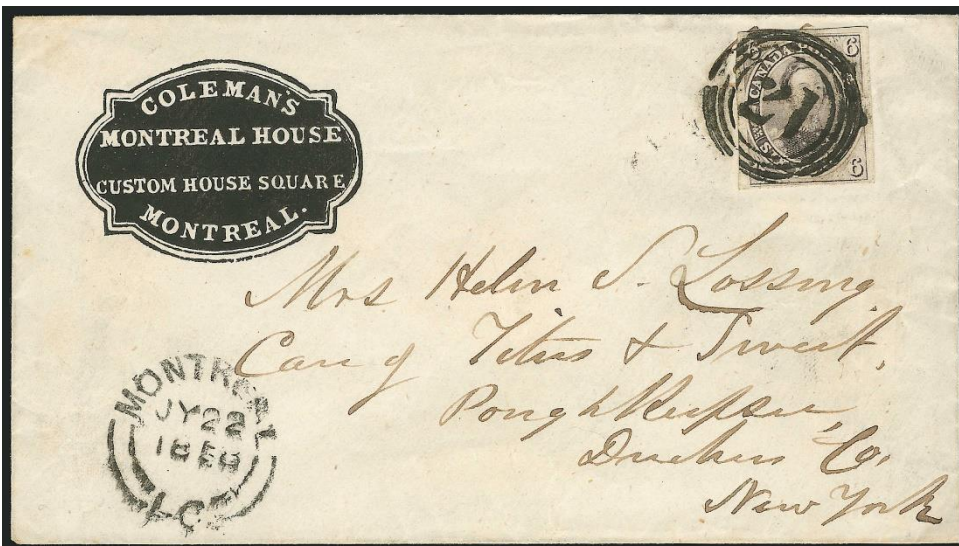 COLEMAN'S
MONTREAL HOUSE
CUSTOM HOUSE SQUARE
MONTREAL.
6
CANADA
21
6
Mrs Helen S. Lossing
Care of Titus & Sweet,
Poughkeepsie,
Duchess Co.
New York
MONTREAL
JY 22
1858
L.C.